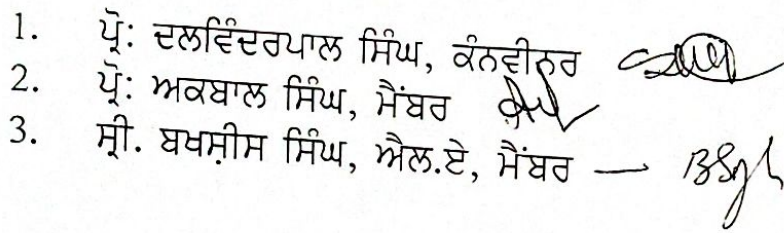 1. ਪ੍ਰੋ: ਦਲਵਿੰਦਰਪਾਲ ਸਿੰਘ, ਕੰਨਵੀਨਰ
2. ਪ੍ਰੋ: ਅਕਬਾਲ ਸਿੰਘ, ਮੈਂਬਰ
3. ਸ੍ਰੀ. ਬਖਸ਼ੀਸ ਸਿੰਘ, ਐਲ.ਏ, ਮੈਂਬਰ —